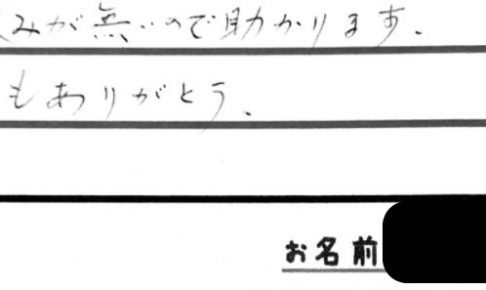 みが無いので助かります.
もありがとう.
お名前